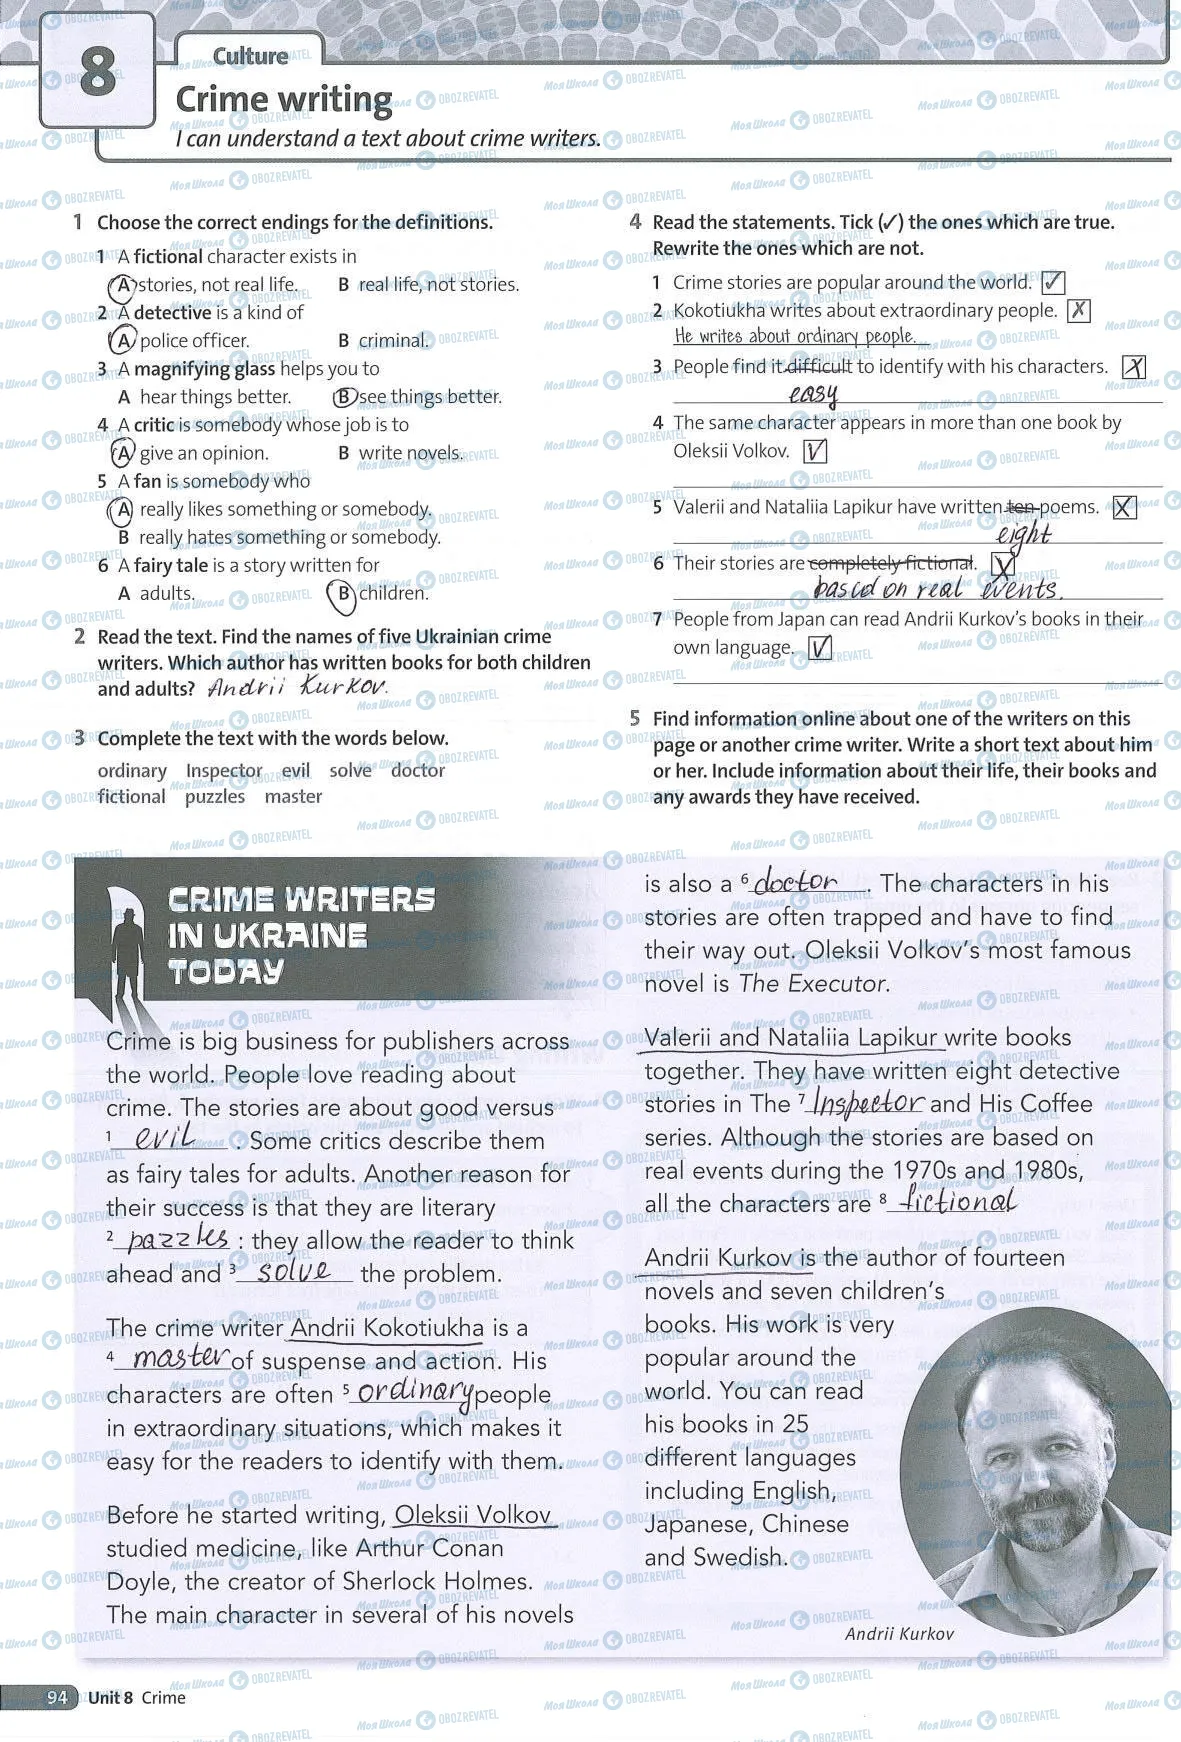 8
Culture
Crime writing
I can understand a text about crime writers.
1 Choose the correct endings for the definitions.
1 A fictional character exists in
A stories, not real life. B real life, not stories.
2 A detective is a kind of
A police officer. B criminal.
3 A magnifying glass helps you to
A hear things better. B see things better.
4 A critic is somebody whose job is to
A give an opinion. B write novels.
5 A fan is somebody who
A really likes something or somebody.
B really hates something or somebody.
6 A fairy tale is a story written for
A adults. B children.
2 Read the text. Find the names of five Ukrainian crime
writers. Which author has written books for both children
and adults? Andrii Kurkov.
3 Complete the text with the words below.
ordinary Inspector evil solve doctor
fictional puzzles master
4 Read the statements. Tick (✓) the ones which are true.
Rewrite the ones which are not.
1 Crime stories are popular around the world. ✓
2 Kokotiukha writes about extraordinary people. ✗
He writes about ordinary people.
3 People find it difficult to identify with his characters. X
easy
4 The same character appears in more than one book by
Oleksii Volkov. V
5 Valerii and Nataliia Lapikur have written ten poems. X
eight
6 Their stories are completely fictional. X
based on real events.
7 People from Japan can read Andrii Kurkov's books in their
own language. V
5 Find information online about one of the writers on this
page or another crime writer. Write a short text about him
or her. Include information about their life, their books and
any awards they have received.
CRIME WRITERS
IN UKRAINE
TODAY
Crime is big business for publishers across
the world. People love reading about
crime. The stories are about good versus
1 evil . Some critics describe them
as fairy tales for adults. Another reason for
their success is that they are literary
2 pazzles : they allow the reader to think
ahead and 3 solve the problem.
The crime writer Andrii Kokotiukha is a
4 master of suspense and action. His
characters are often 5 ordinary people
in extraordinary situations, which makes it
easy for the readers to identify with them.
Before he started writing, Oleksii Volkov
studied medicine, like Arthur Conan
Doyle, the creator of Sherlock Holmes.
The main character in several of his novels
is also a 6 doctor . The characters in his
stories are often trapped and have to find
their way out. Oleksii Volkov's most famous
novel is The Executor.
Valerii and Nataliia Lapikur write books
together. They have written eight detective
stories in The 7 Inspector and His Coffee
series. Although the stories are based on
real events during the 1970s and 1980s,
all the characters are 8 fictional
Andrii Kurkov is the author of fourteen
novels and seven children's
books. His work is very
popular around the
world. You can read
his books in 25
different languages
including English,
Japanese, Chinese
and Swedish.
Andrii Kurkov
94 Unit 8 Crime
Моя Школа OBOZREVATEL